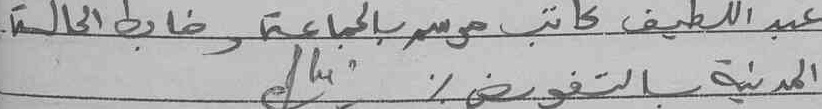 عبد اللطيف كاتب موسر بالجماعة وضابط الحالة
المدنية بالتفويض ./.